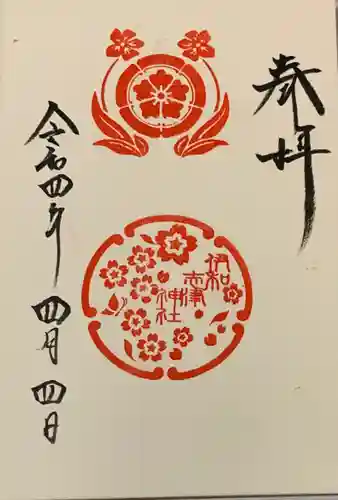 奉拝
伊和
志津
神社
令和四年 四月 四日